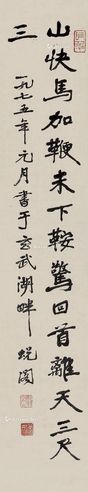 山快馬加鞭未下鞍驚回首離天三尺
三
一九七五年元月書于玄武湖畔